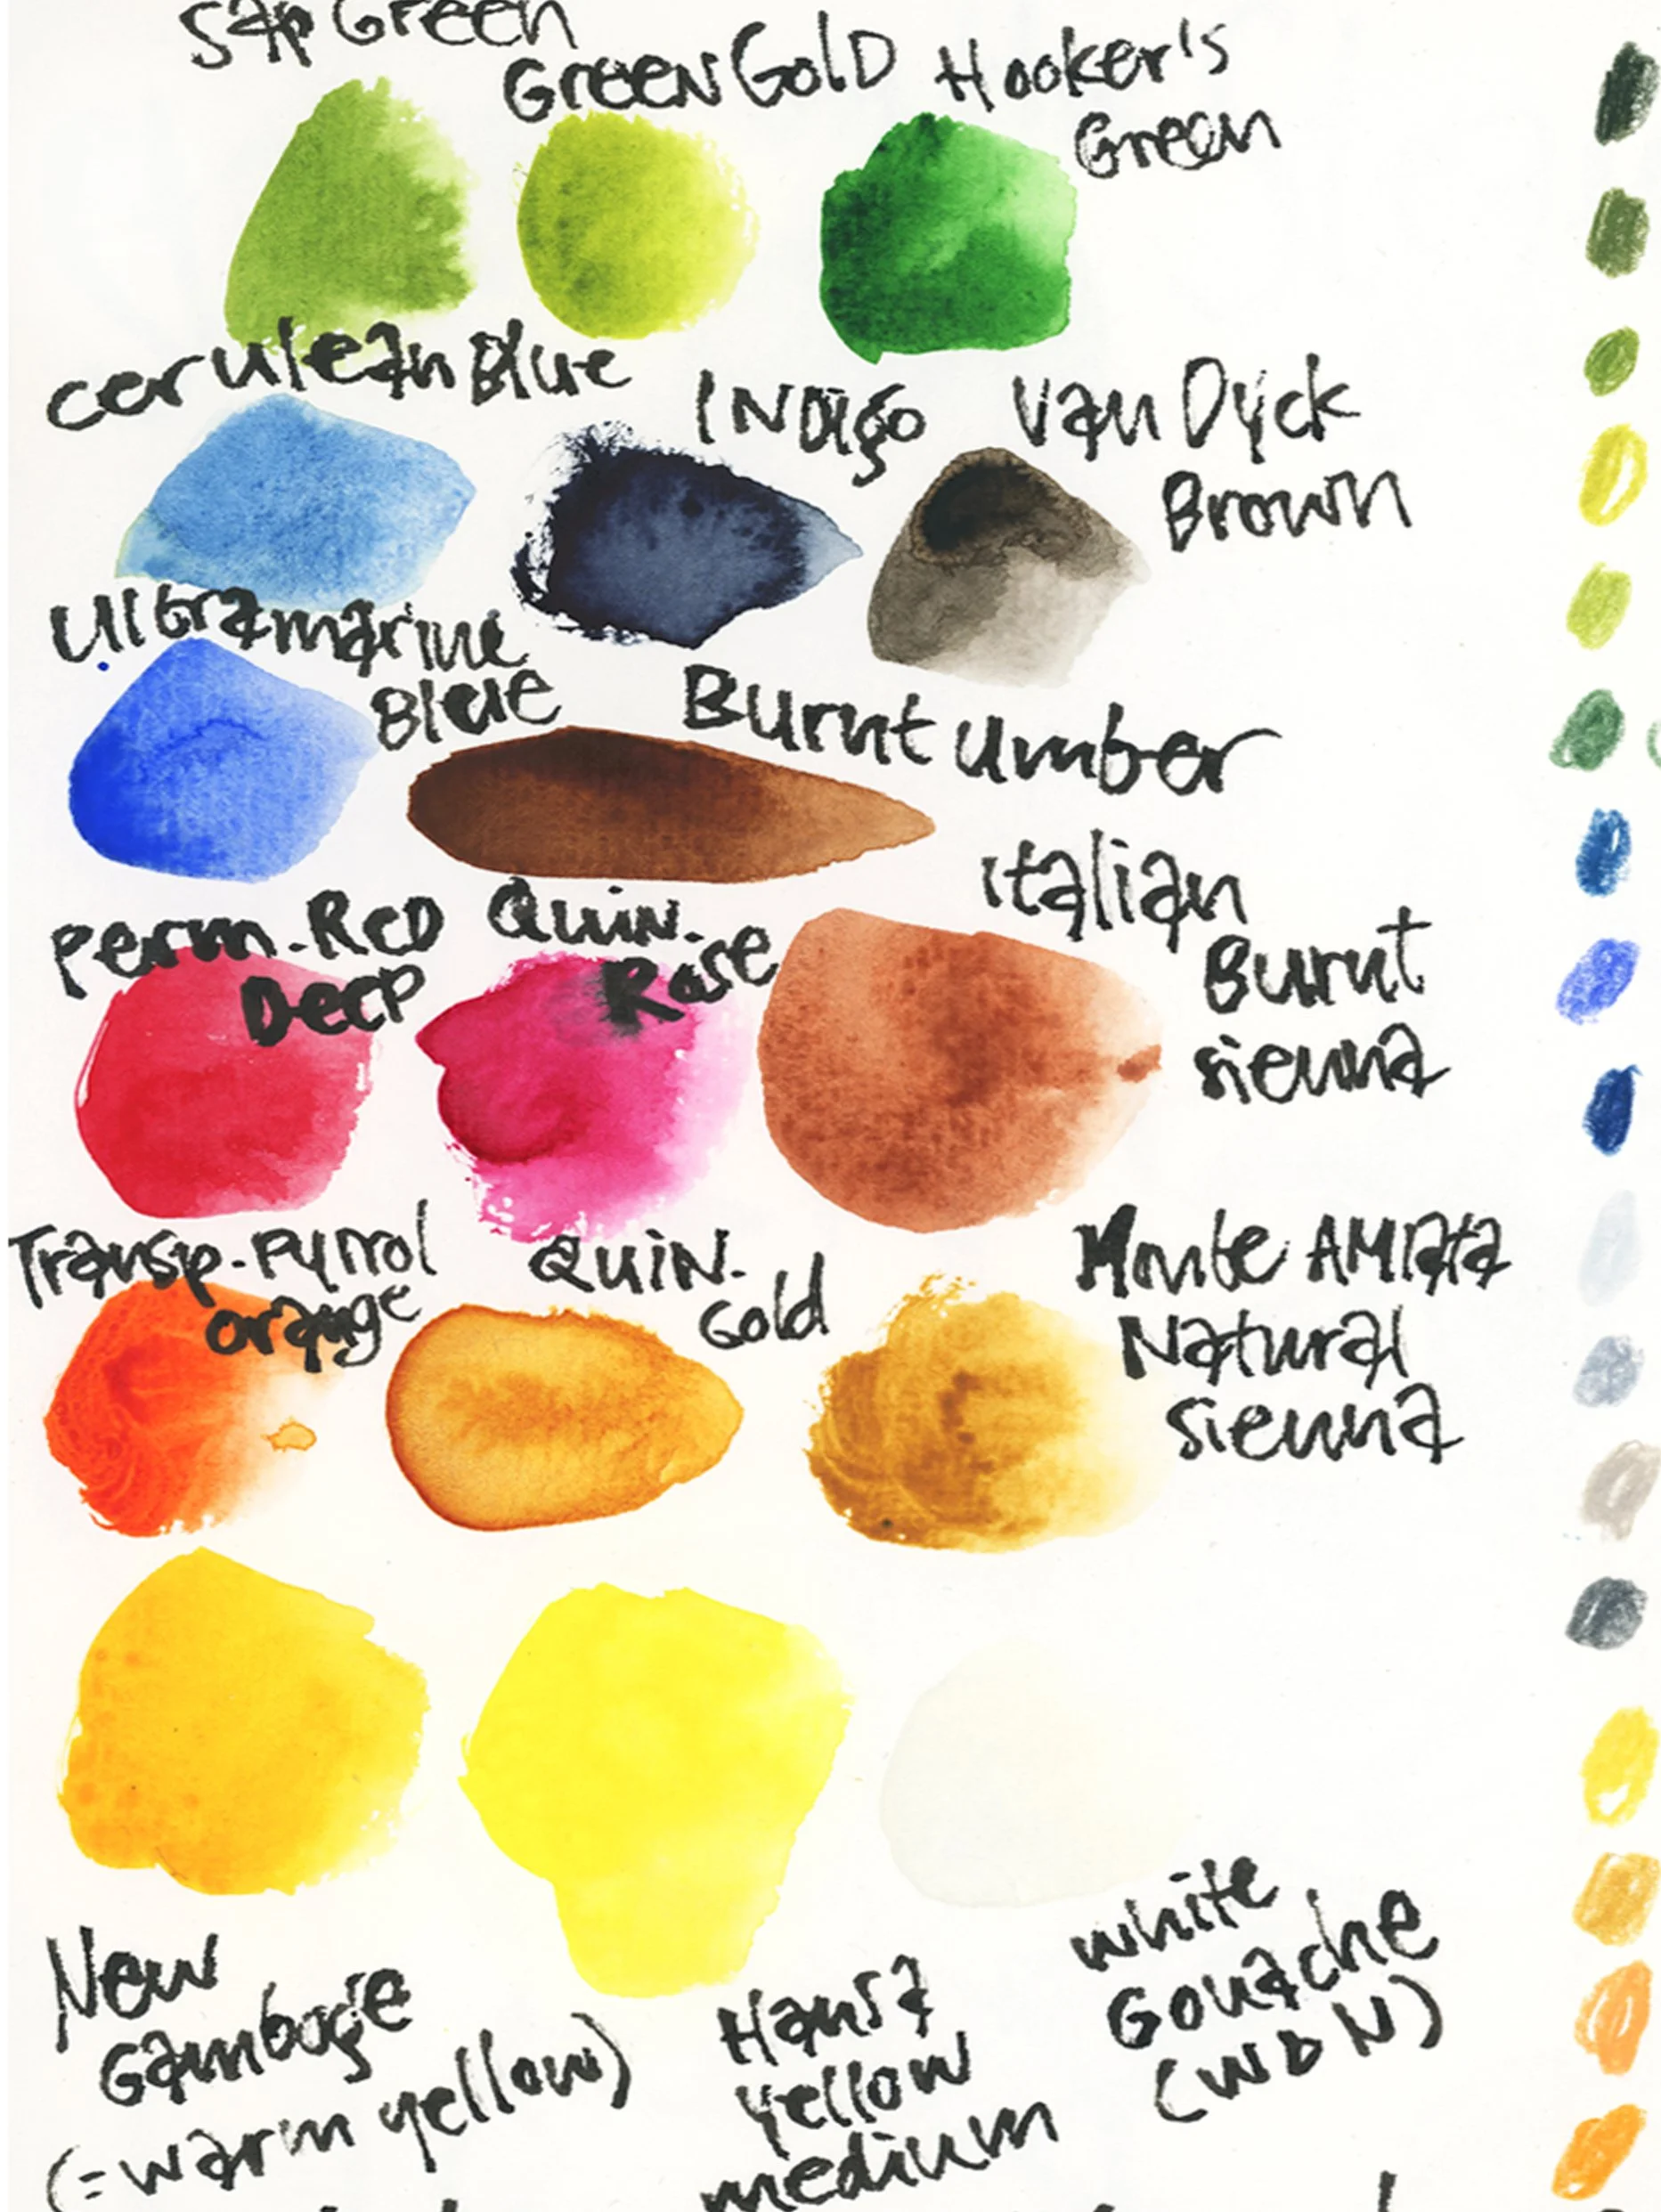 Sap Green
Green Gold
Hooker's
Green
Cerulean Blue
Indigo
Van Dyck
Brown
Ultramarine
Blue
Burnt Umber
Italian
Burnt
Sienna
Perm. Red
Deep
Quin.
Rose
Transp. Pyrrol
Orange
Quin.
Gold
Monte Amiata
Natural
Sienna
New
Gamboge
(=warm yellow)
Hansa
Yellow
medium
white
Gouache
(W&N)